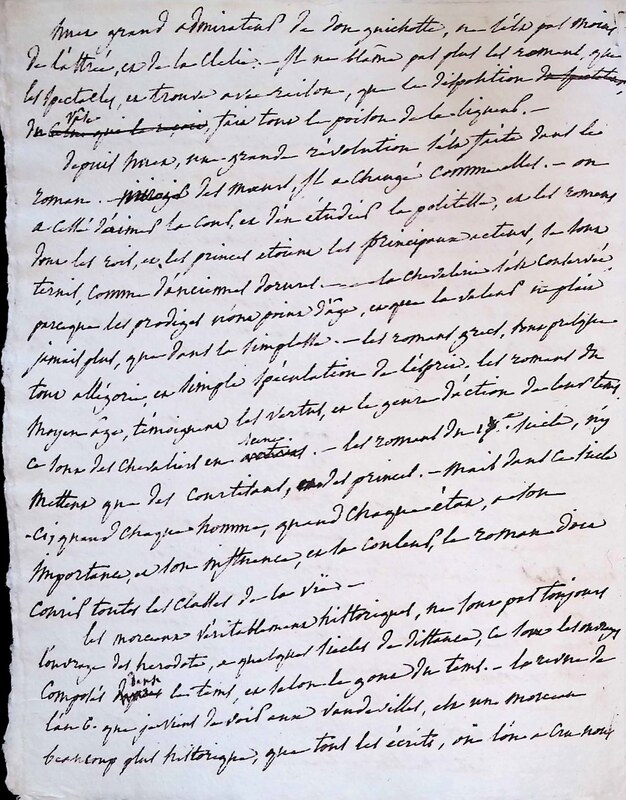 huet grand admirateur de don guichotte, ne l'est pas moins
de l'astrée, et de la Clelie. - Il ne blâme pas plus les romans, que
les spectacles, et trouve avec raison, que la disposition
du fait tout le poison de la liqueur. -
depuis huet, une grande révolution s'est faite dans les
romans. - des mœurs, Il a changé comme elles. - on
a cessé d'aimer la cour, et d'en étudier la politesse, et les romans
dont les rois, et les princes etoient les principaux acteurs, se sont
ternis, comme d'anciennes dorures. - la chevalerie s'est conservée
parceque les prodiges n'ont point d'âge, et que la valeur ne plait
jamais plus, que dans la simplesse. - les romans grecs, sont presque
tout allégorie, et simple spéculation de l'esprit. les romans du
moyen age, témoignent les vertus, et le genre d'action de leur tems
ce sont des chevaliers en scene. - les romans du 17e. siecle, n'y
mettent que des courtisans, des princes. - mais dans ce siecle
-ci, quand chaque homme, quand chaque état, a son
importance, et son influence, et sa couleur, le roman doit
courir toutes les classes de la vie -
les morceaux véritablement historiques, ne sont pas toujours
l'ouvrage des herodote, a quelques siecles de distance, ce sont les ouvrages
composés dans le tems, et selon le gout du tems. - la revue de
l'an 6. que je viens de voir aux vaudevilles, est un morceau
beaucoup plus historique, que tous les écrits, où l'on a cru nous